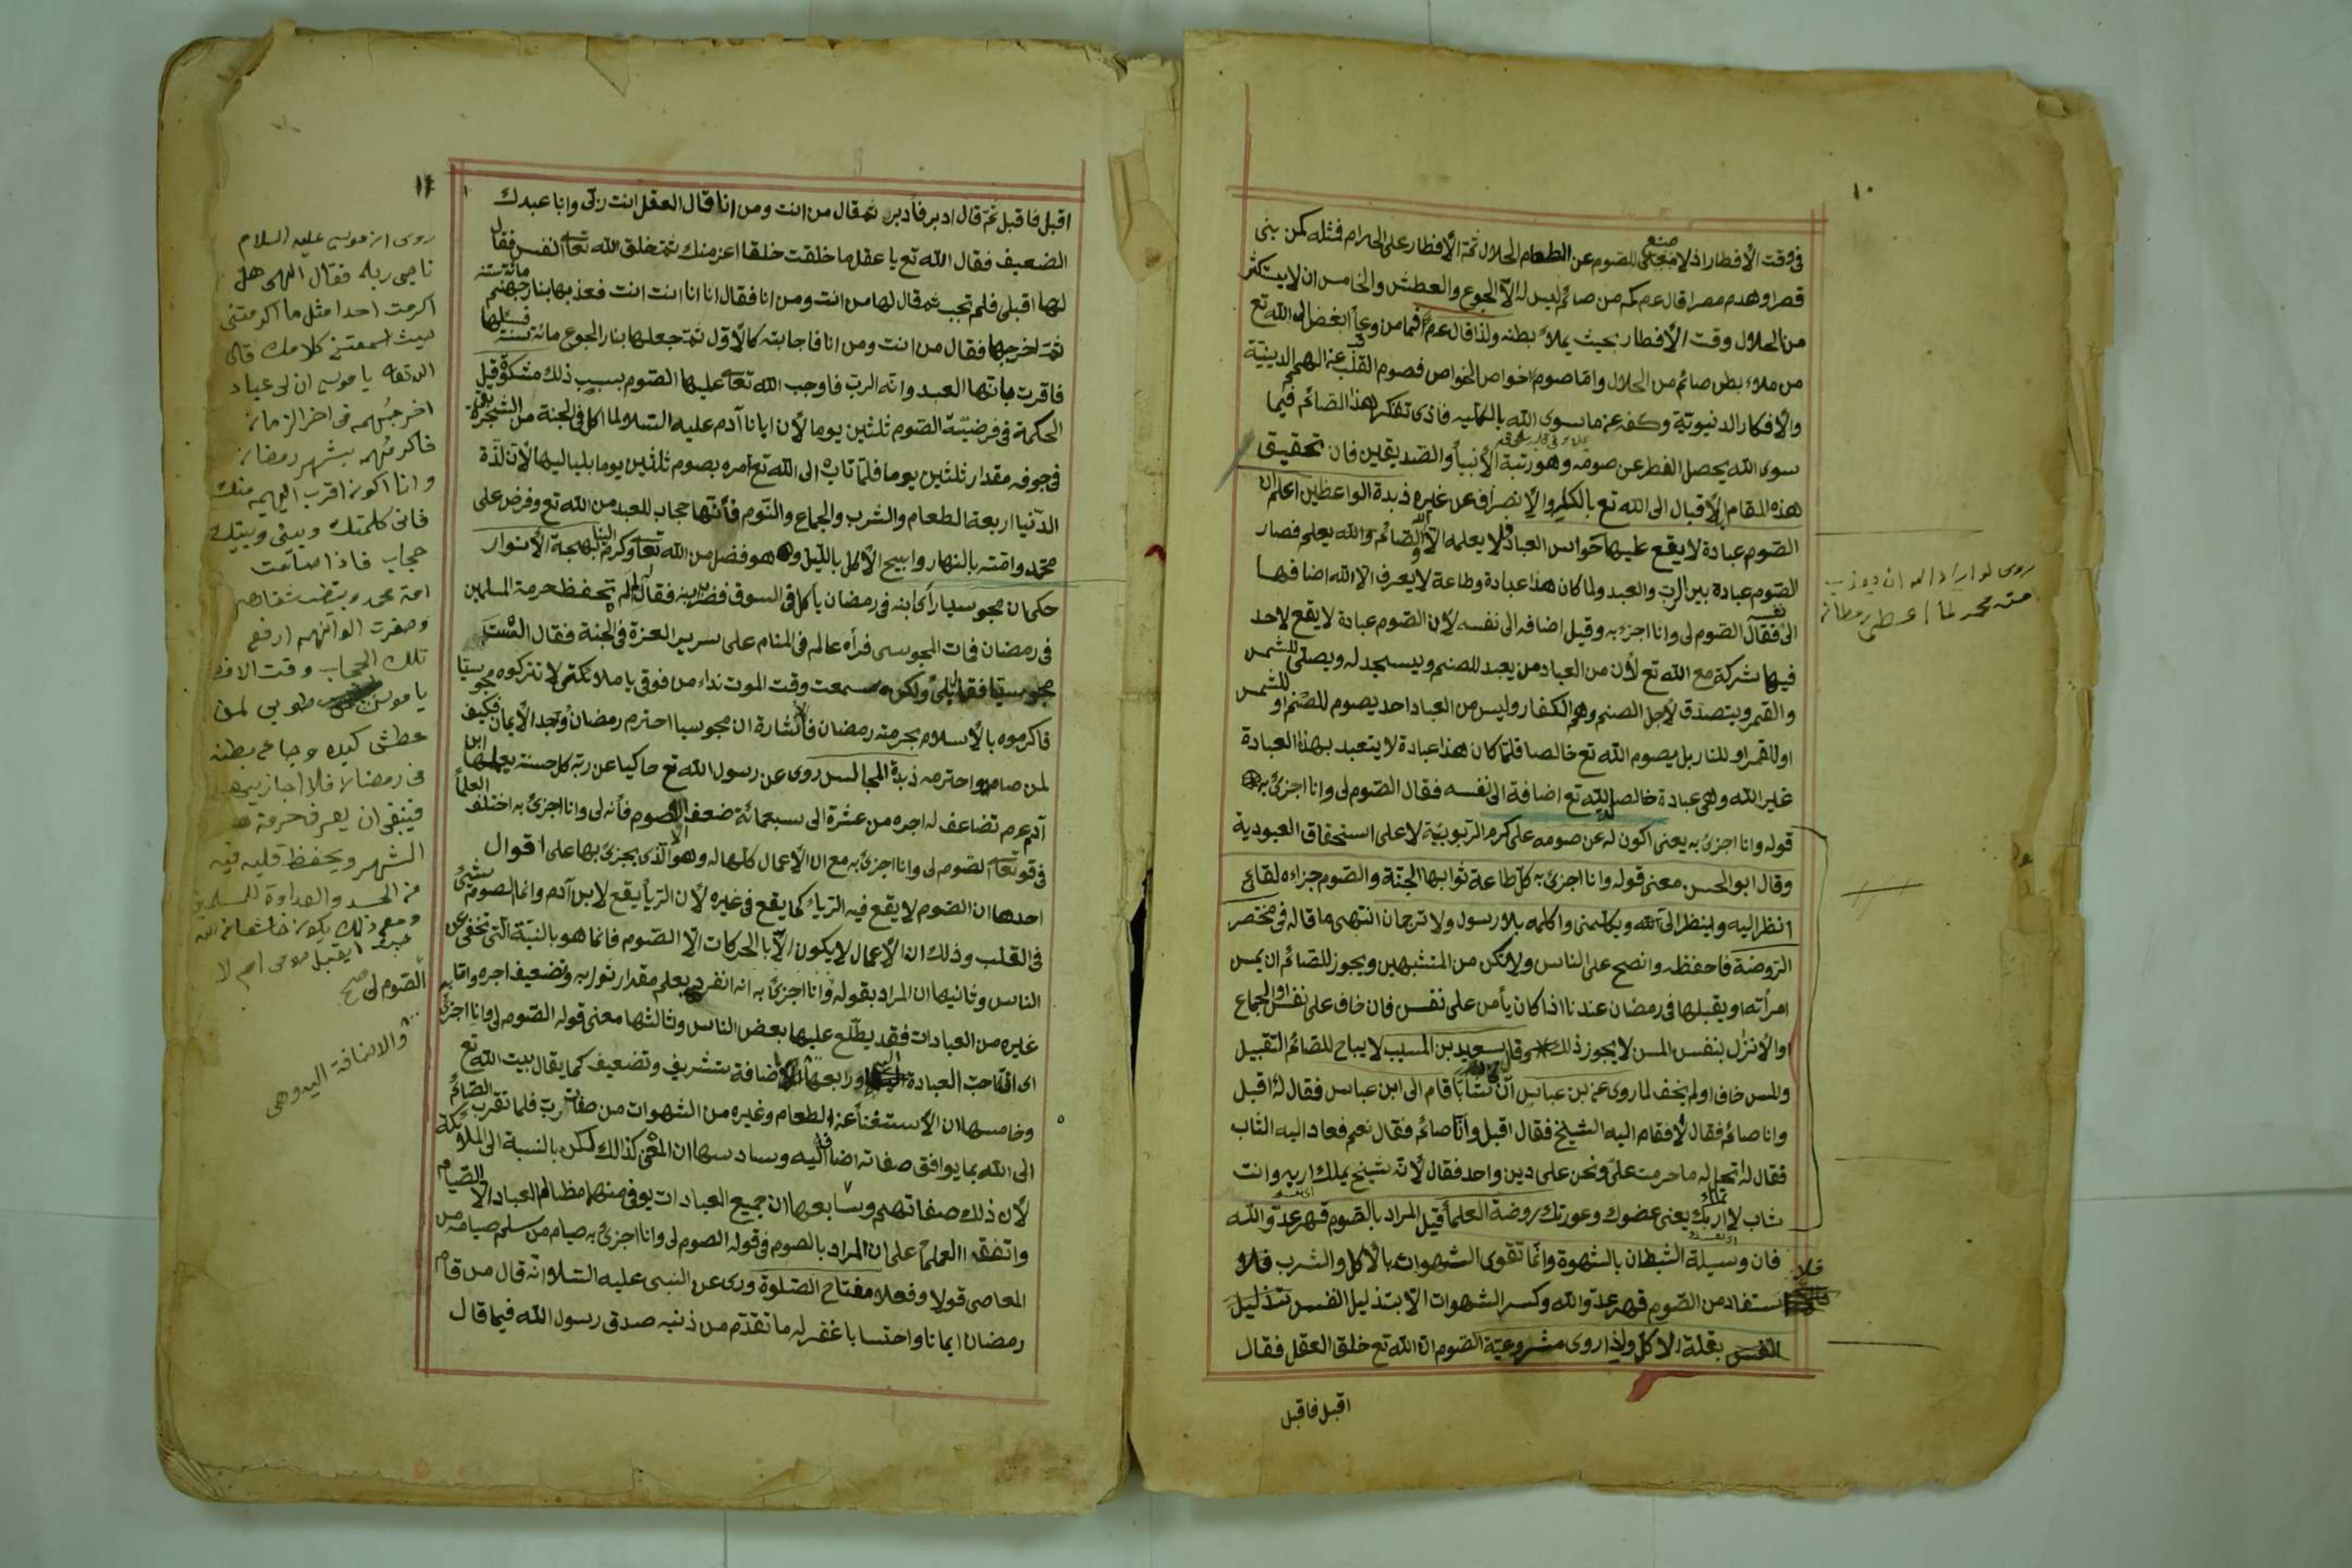 ١٠
في وقت الأفطار اذ لا معنى للصوم عن الطعام الحلال ثمة الأفطار على الحرام فمثله كمن بنى
قصرا وهدم مصرا قال عم كم من صائم ليس له الّا الجوع والعطش والخامس ان لا يستكثر
من الحلال وقت الأفطار بحيث يملأ بطنه ولذا قال عم فما من وعاً ابغض الى الله تع
من ملاء بطن صائم من الحلال وامّا صوم اخواص الخواص فصوم القلب عن الهمم الدينيّة
والأفكار الدنيويّة وكفه عن ما سوى الله بالكلّيه فاذى تفكر هذا الصّائم فيما
سوى الله يحصل الفطر عن صومه وهو رتبة الأنبياً والصّديقين فان تحقيق
هذه المقام الأقبال الى الله تع بالكليه والأنصراف عن غيره ذبدة الواعظين اعلم ان
الصّوم عبادة لا يقع عليها حواس العباد فلا يعلمه الّا الله والصّائم والله يعلم فصار
الصّوم عبادة بين الرب والعبد ولما كان هذا عبادة وطاعة لا يعرف الا الله اضافها
الى نفسه فقال الصّوم لى وانا اجزء به وقيل اضافه الى نفسه لأن الصّوم عبادة لا يقع لاحد
فيها شركة مع الله تع لأن من العباد من يعبد للصنم ويسجد له ويصلّى للشمس
والقمر ويتصدّق لأجل الصنم وهم الكفار وليس من العباد احد يصوم للصّنم او للشمس
او للقمر او للنار بل يصوم الله تع خالصا فلمّا كان هذا عبادة لا يتعبد بهذه العبادة
غير الله وهى عبادة خالصا لله تع اضافة الى نفسه فقال الصّوم لى وانا اجزئ به
قوله وانا اجزئ به يعنى اكون له عن صومه على كرم الرّبوبيّة لا على استحقاق العبودية
وقال ابو الحسن معنى قوله وانا اجزئ به كلّ طاعة ثوابها الجنّة والصّوم جزاءه لقائى
انظر اليه وينظر الى الله ويكلّمنى واكلمه بلا رسول ولا ترجمان انتهى ما قاله فى مختصر
الرّوضة فاحفظه وانصح على الناس ولا تكن من المنشبهين ويجوز للصّائم ان يمس
امرأته او يقبلها فى رمضان عندنا اذا كان يأمن على نفس فان خاف على نفس الجماع
او الأنزٰل بنفس المس لا يجوز ذلك وقال سعيد بن المسيب لا يباح للصّائم التقبيل
والمس خاف او لم يخف لما روى عن بن عباس انّ شابا قام الى ابن عباس فقال له اقبل
وانا صائم فقال لا فقام اليه الشيخ فقال اقبل وانا صائم فقال نعم فعاد اليه الشاب
فقال له اتحلّ له ما حرمت علىّ ونحن على دين واحد فقال لأنّه شيخ يملك اربه وانت
شاب لا تملك اربك يعنى عضوك وعورتك روضة العلمأ قيل المراد بالصّوم قهر عدّو الله
فان وسيلة الشيطان بالشهوة وانّما تقوى الشهوات بالأكل والشرب فلا
يستفاد من الصّوم قهر عدّو الله وكسر الشهوات الّا بتذليل النفس تذليل
النفس بقلة الاكل ولذا روى مشروعيّة الصّوم انّ الله تع خلق العقل فقال
اقبل فاقبل
روى لو اراد الله ان يعذب
امته محمد لما اعطى رمضان
اقبل فاقبل ثمّ قال ادبر فأدبر ثمّ قال من انت ومن انا قال العقل انت ربّى وانا عبدك
الضعيف فقال الله تع يا عقل ما خلقت خلقا اعز منك ثمّ خلق الله تعالى النفس فقال
لها اقبلى فلم تجب ثم قال لها من انت ومن انا فقال انا انا انت انت فعذبها بنار جهنّم مائة سنة
ثمّ اخرجها فقال من انت ومن انا فاجابته كالأوّل ثمّ جعلها بنار الجوع مائة سنة فسئلها
فاقرت بانّها العبد وانّه الرب فاوجب الله تعالى عليها الصّوم بسبب ذلك مشكوة قيل
الحكمة فى فرضيّة الصّوم ثلثين يوما لأن ابانا آدم عليه السّلام لما اكل فى الجنة من الشجرة بقى
فى جوفه مقدار ثلثين يوما فلمّا تاب الى الله تع امره بصوم ثلثين يوما بلياليها لأن لذّة
الدّنيا اربعة الطعام والشرب والجماع والنّوم فأنّها حجاب للعبد من الله تع وفرض على
محمّد وامّته بالنهار وابيح الأكل بالليل وهو فضل من الله تعالى وكرم الينا بهجة الأنوار
حكى ان مجوسيا رأى ابنه فى رمضان يأكل فى السوق فضربه فقال لم لم تحفظ حرمة المسلمين
فى رمضان فمات المجوسى فرأه عالم فى المنام على سرير العزة فى الجنة فقال الست
مجوسيّا فقال بلى ولكن سمعت وقت الموت نداء من فوقى يا ملائكتى لا تتركوه مجوسيّا
فاكرموه بالأسلام بحرمته رمضان فالأشارة ان مجوسيا احترم رمضان وجد الأيمان فكيف
لمن صامه واحترمه ذبدة المجالس روى عن رسول الله تع حاكيا عن ربّه كل حسنة يعملها ابن
آدم عرم تضاعف له اجره من عشرة الى سبعمائة ضعف الّا الصّوم فأنه لى وانا اجزئ به اختلف العلمأ
فى قوله تعالى الصّوم لى وانا اجزئ به مع انّ الأعمال كلّها له وهو الّذى يجزئ بها على اقوال
احدها ان الصّوم لا يقع فيه الرّياء كما يقع فى غيره لأن الرّيأ يقع لابن آدم وانما الصوم شيئ
فى القلب وذلك ان الأعمال لا يكون الّا بالحركات الّا الصّوم فانما هو بالنيّة الّتى تخفى عن
الناس وثانيها ان المراد بقوله وانا اجزئ به انه انفرد بعلم مقدار ثوابه وتضعيف اجره وامّا
غيره من العبادات فقد يطّلع عليها بعض الناس وثالثها معنى قوله الصّوم لى وانا اجزئ به
اى انّه احبّ العبادة الىّ ورابعها الاضافة تشريف وتضعيف كما يقال بيت الله تع
وخامسها ان الأستغنأ عن الطعام وغيره من الشهوات من صفات ربّ فلما تقرب الصّائم
الى الله بما يوافق صفاته اضافه اليه وسادسها ان المعنى كذالك لكن بالنسبة الى الملائكة
لأن ذلك صفاتهم وسابعها ان جميع العبادات يوفى منها مظالم العباد الّا الصّيام
واتّفق العلمأ على ان المراد بالصوم فى قوله الصوم لى وانا اجزئ به صيام من سلم صيامه من
المعاصى قولا وفعلا مفتاح الصّلوة وروى عن النبى عليه السّلام انّه قال من قام
رمضان ايمانا واحتسابا غفر له ما تقدّم من ذنبه صدق رسول الله فيما قال
روى ان موسى عليه السلام
ناجى ربه فقال الهى هل
اكرمت احدا مثل ما اكرمتنى
حيث اسمعتنى كلامك قال
الله تعالى يا موسى ان لى عباد
اخرجهم فى اخر الزمان
فاكرمهم بشهر رمضان
وانا اكون اقرب اليهم منك
فانى كلمتك وبينى وبينك
حجاب فاذا صامت
امة محمد وبيضت شفاههم
وصفرت الوانهم ارفع
تلك الحجاب وقت الافطار
يا موسى طوبى لمن
عطش كبده وجاع بطنه
فى رمضان فلا اجازيهم
فينبغى ان يعرف حرمة هذا
الشهر ويحفظ قلبه فيه
من الحسد والعداوة للمسلمين
ومع ذلك يكون خاشعا من الله
ايقبل صومى ام لا
الصّوم لى صح
والاضافة اليه وهى